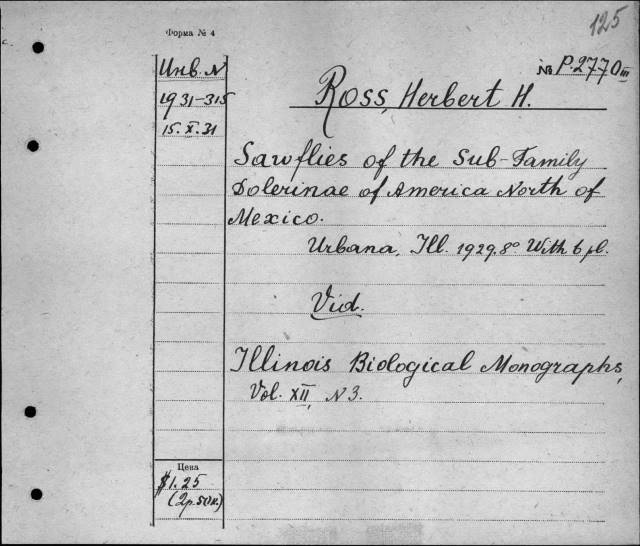 125
Форма № 4
Инв. N
№ P.2770 III
1931-315
Ross, Herbert H.
15.X.31
Sawflies of the Sub-Family
Dolerinae of America North of
Mexico.
Urbana, Ill. 1929. 8° With 6 pl.
Vid.
Illinois Biological Monographs,
Vol. XII, N 3.
Цена
$1.25
(2р.50к.)